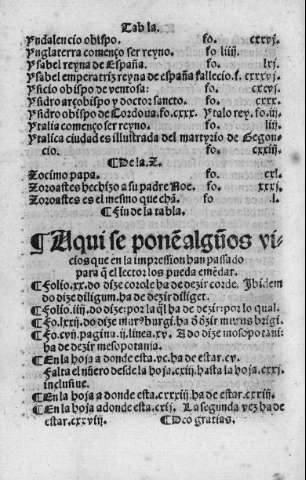 Tabla.
Yndalencio obispo. fo. cxxvj.
Ynglaterra començo ser reyno. fo liiij.
Ysabel reyna de España. fo. lxj.
Ysabel emperatriz reyna de españa fallecio. f. cxxxvj.
Ysicio obispo de ventosa: fo. cxcvj.
Ysidro arçobispo y doctor sancto. fo. cxxx.
Ysidro obispo de Cordoua. fo. cxx. Ytalo rey. fo. iij.
Ytalia començo ser reyno. fo. lij.
Ytalica ciudad es illustrada del martyrio de Gegon-
cio. fo. cxxiij.
¶ De la. Z.
Zocimo papa. fo. cxl.
Zoroastes hechizo a su padre Noe. fo. xxxj.
Zoroastes es el mesmo que chã. fo l.
¶ Fin de la tabla.
¶ Aqui se ponẽ algũos vi-
cios que en la impression han passado
para q̃ el lector los pueda emẽdar.
¶ Folio. xx. do dize corole ha de dezir corde. Ibidem
do dize diligum. ha de dezir diliget.
¶ Folio. iiij. do dize: por la q̃l ha de dezir: por lo qual.
¶ Fo. lxxij. do dize mar?burgi. ha ð dezir murus brigi.
¶ Fo. cvij. pagina. ij. linea. xv. A do dize mosopotani:
ha de dezir mesopotania.
¶ En la hoja a donde esta. vc. ha de estar. cv.
Falta el nũero desde la hoja. cxiij. hasta la hoja. cxxj.
inclusiue.
¶ En la hoja a donde esta. cxxxiij. ha de estar. cxxiij.
¶ En la hoja adonde esta. cxij. La segunda vez ha de
estar. cxxviij. ¶ Deo gratias.